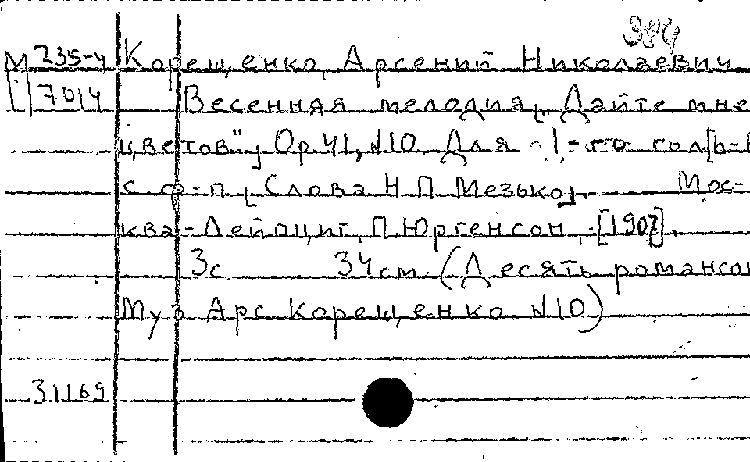 394
М 235-4 Корещенко, Арсений Николаевич
7014 Весенняя мелодия, "Дайте мне
цветов", Op. 41, N10. Для 1-го гол[о-
с ф-п. Слова Н.П. Мезько. Мос-
ква-Лейпциг, П. Юргенсон, [1907].
3с 34см. (Десять романсо
Муз. Арс. Корещенко N10)
31169